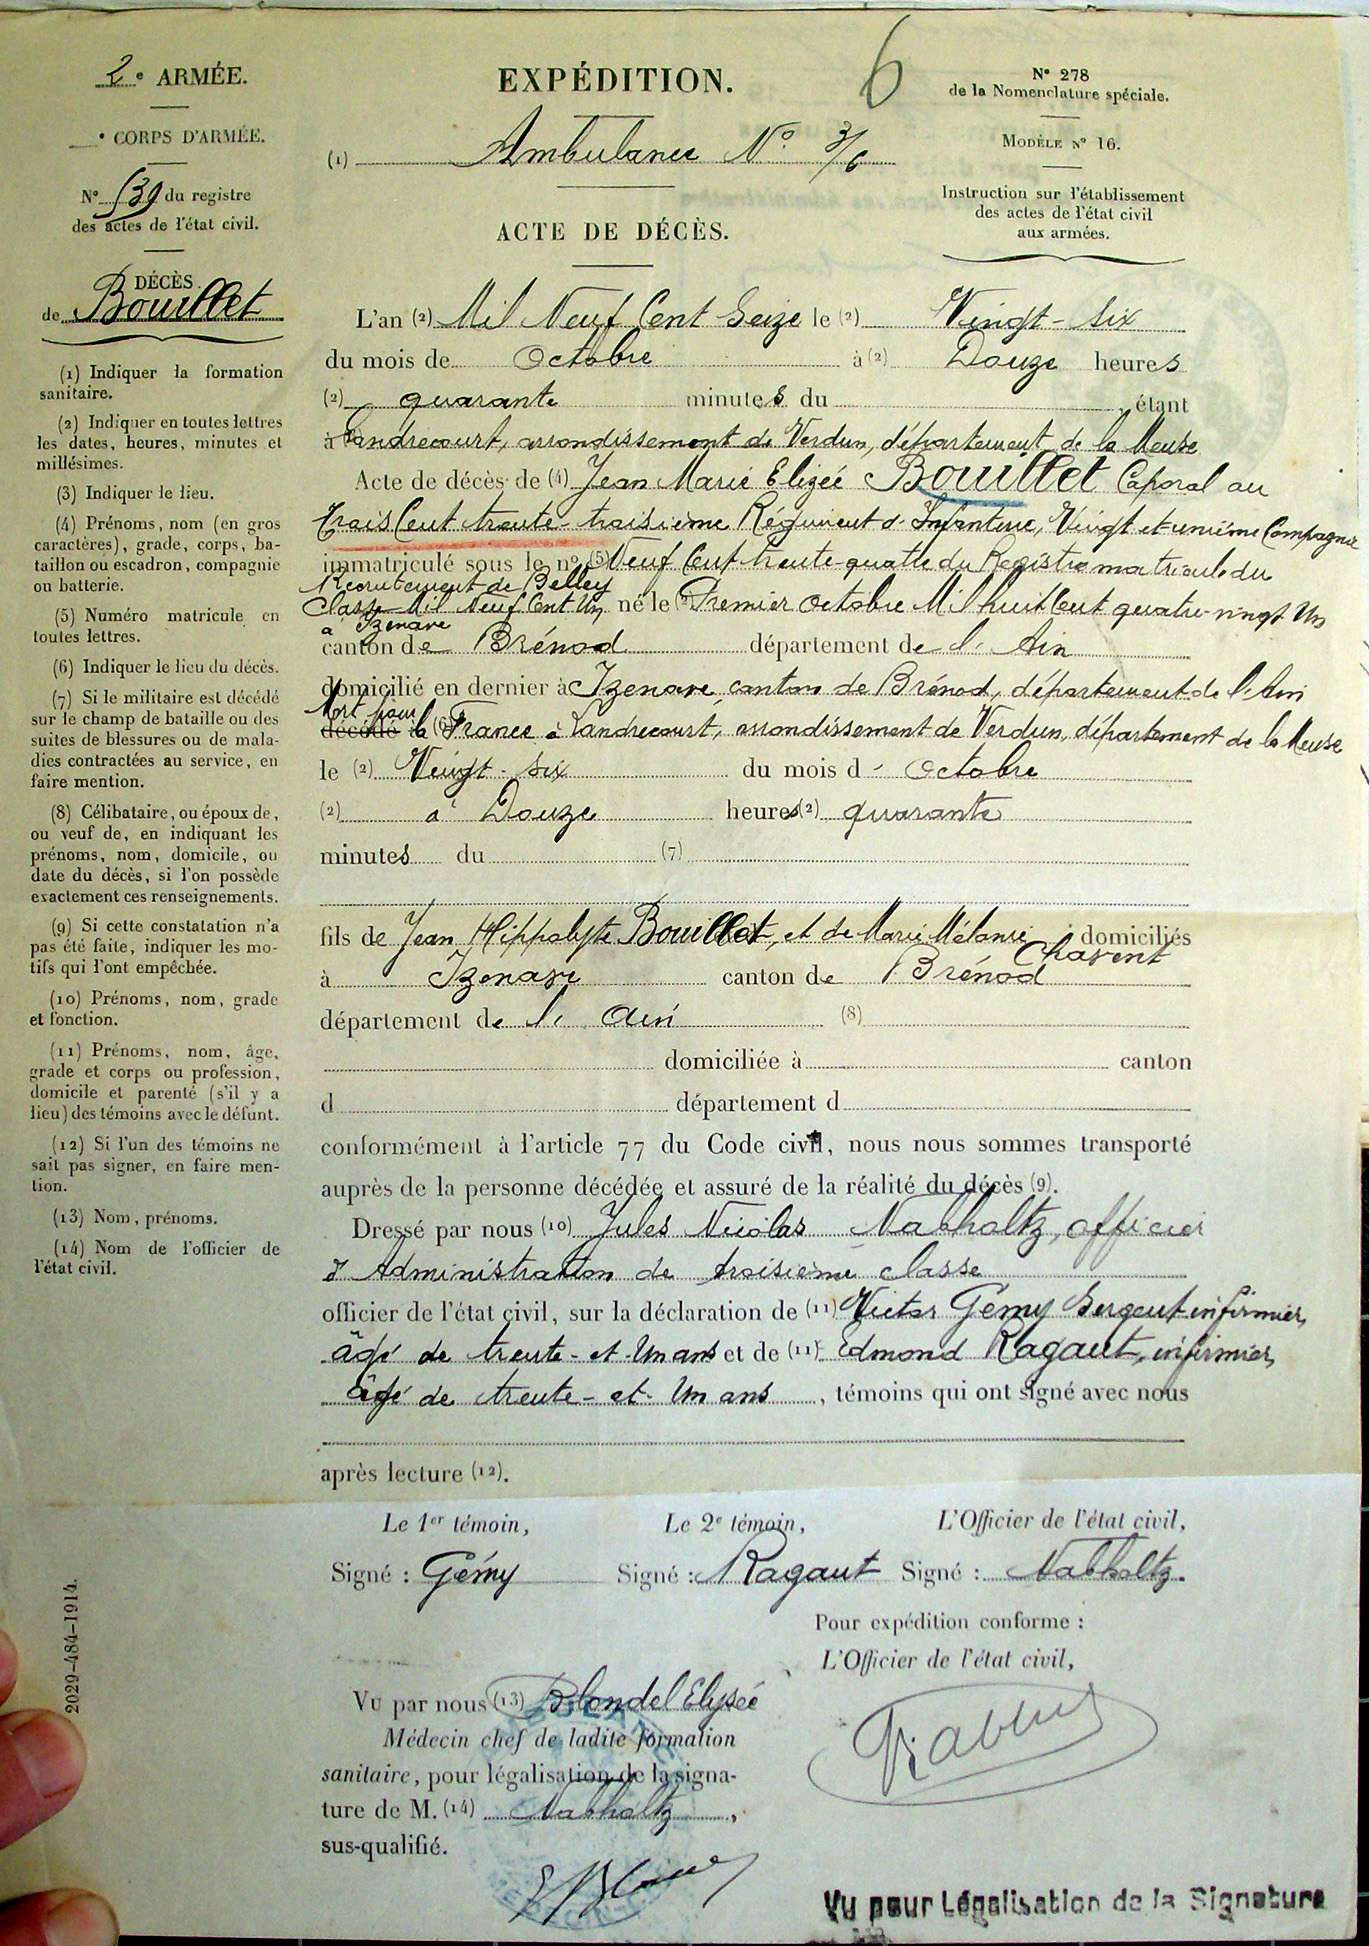 2e ARMÉE.
e CORPS D'ARMÉE.
N° 539 du registre
des actes de l'état civil.
DÉCÈS
de Bouillet
(1) Indiquer la formation
sanitaire.
(2) Indiquer en toutes lettres
les dates, heures, minutes et
millésimes.
(3) Indiquer le lieu.
(4) Prénoms, nom (en gros
caractères), grade, corps, ba-
taillon ou escadron, compagnie
ou batterie.
(5) Numéro matricule en
toutes lettres.
(6) Indiquer le lieu du décès.
(7) Si le militaire est décédé
sur le champ de bataille ou des
suites de blessures ou de mala-
dies contractées au service, en
faire mention.
(8) Célibataire, ou époux de,
ou veuf de, en indiquant les
prénoms, nom, domicile, ou
date du décès, si l'on possède
exactement ces renseignements.
(9) Si cette constatation n'a
pas été faite, indiquer les mo-
tifs qui l'ont empêchée.
(10) Prénoms, nom, grade
et fonction.
(11) Prénoms, nom, âge,
grade et corps ou profession,
domicile et parenté (s'il y a
lieu) des témoins avec le défunt.
(12) Si l'un des témoins ne
sait pas signer, en faire men-
tion.
(13) Nom, prénoms.
(14) Nom de l'officier de
l'état civil.
2029-484-1914.
EXPÉDITION.
6
(1) Ambulance N° 3/6
ACTE DE DÉCÈS.
N° 278
de la Nomenclature spéciale.
MODÈLE N° 16.
Instruction sur l'établissement
des actes de l'état civil
aux armées.
L'an (2) Mil Neuf Cent Seize le (2) Vingt-Six
du mois de Octobre à (2) Douze heures
(2) quarante minutes du étant
à Landrecourt, arrondissement de Verdun, département de la Meuse
Acte de décès de (4) Jean Marie Elizée Bouillet Caporal au
Trois Cent trente-troisième Régiment d'Infanterie, Vingt et unième Compagnie
immatriculé sous le no (5) Neuf Cent trente-quatre du Registre matricule du
Recrutement de Belley
Classe Mil Neuf Cent Un, né le Premier Octobre Mil huit Cent quatre-vingt Un
à Izenave
canton de Brénod département de l'Ain
domicilié en dernier à Izenave, canton de Brénod, département de l'Ain
Mort pour
décédé la (6) France à Landrecourt, arrondissement de Verdun, département de la Meuse
le (2) Vingt-Six du mois d' Octobre
(2) à Douze heures (2) quarante
minutes du (7)
fils de Jean Hippolyte Bouillet, et de Marie Mélanie domiciliés
Charent
à Izenave canton de Brénod
département de l'Ain (8)
domiciliée à canton
d département d
conformément à l'article 77 du Code civil, nous nous sommes transporté
auprès de la personne décédée et assuré de la réalité du décès (9).
Dressé par nous (10) Jules Nicolas Nabholtz, officier
d'Administration de troisième classe
officier de l'état civil, sur la déclaration de (11) Victor Gémy Sergent infirmier,
âgé de trente-et-Un ans et de (11) Edmond Ragaut, infirmier,
âgé de trente-et-Un ans, témoins qui ont signé avec nous
après lecture (12).
Le 1er témoin, Le 2e témoin, L'Officier de l'état civil,
Signé : Gémy Signé : Ragaut Signé : Nabholtz.
Pour expédition conforme :
L'Officier de l'état civil,
Vu par nous (13) Blondel Elysée
Médecin chef de ladite formation
sanitaire, pour légalisation de la signa-
ture de M. (14) Nabholtz,
sus-qualifié.
Vu pour Légalisation de la Signature